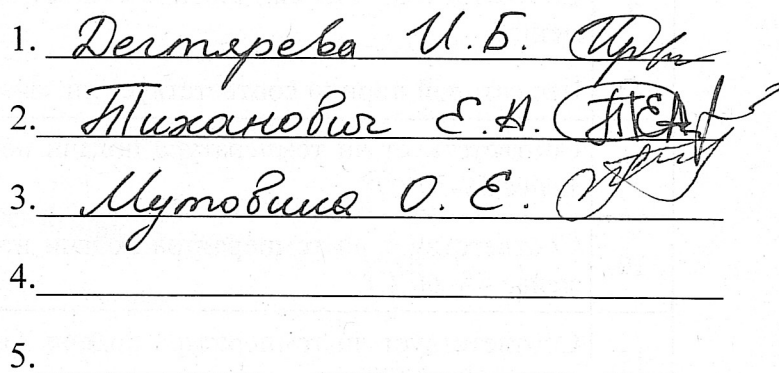 1. Дегтярева И.Б.
2. Тиханович Е.А. ТЕА
3. Мутовина О.Е.
4.
5.